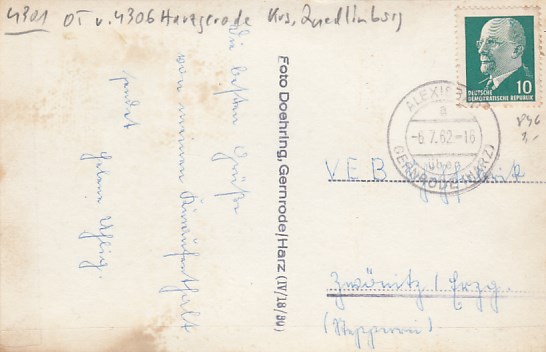 4301 OT v. 4306 Harzgerode Krs. Quedlinburg
Die besten Grüße
von meinem Kuraufenthalt
sendet
Foto Doehring, Gernrode/Harz (IV/18/80)
DEUTSCHE
DEMOKRATISCHE REPUBLIK
10
a
-6.7.62-16
über
GERNRODE (HARZ)
VEB
Zwönitz / Erzg.